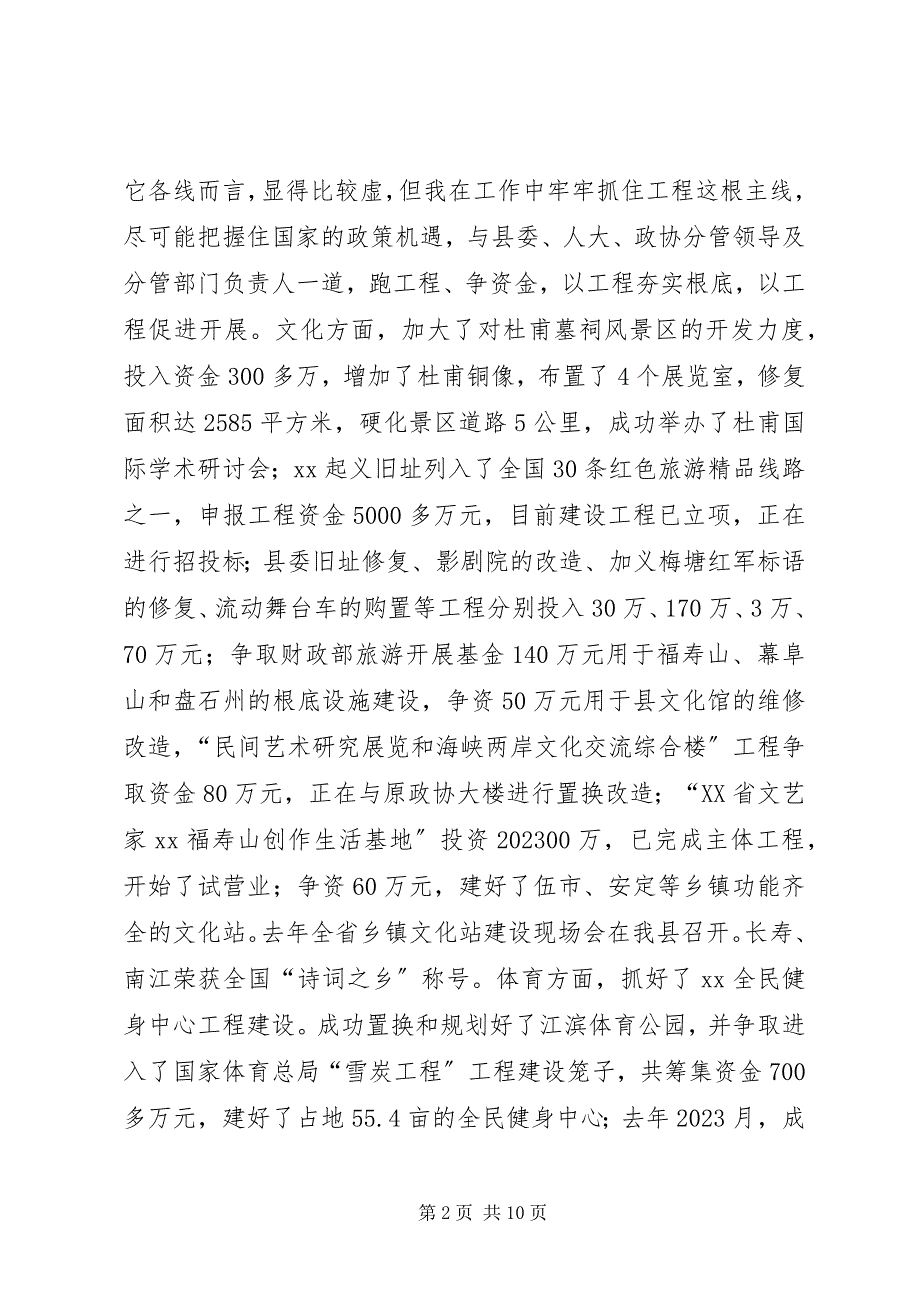 它各线而言，显得比较虚，但我在工作中牢牢抓住工程这根主线，
尽可能把握住国家的政策机遇，与县委、人大、政协分管领导及
分管部门负责人一道，跑工程、争资金，以工程夯实根底，以工
程促进开展。文化方面，加大了对杜甫墓祠风景区的开发力度，
投入资金 300 多万，增加了杜甫铜像，布置了 4 个展览室，修复
面积达 2585 平方米，硬化景区道路 5 公里，成功举办了杜甫国
际学术研讨会；xx 起义旧址列入了全国 30 条红色旅游精品线路
之一，申报工程资金 5000 多万元，目前建设工程已立项，正在
进行招投标；县委旧址修复、影剧院的改造、加义梅塘红军标语
的修复、流动舞台车的购置等工程分别投入 30 万、170 万、3 万、
70 万元；争取财政部旅游开展基金 140 万元用于福寿山、幕阜
山和盘石州的根底设施建设，争资 50 万元用于县文化馆的维修
改造，“民间艺术研究展览和海峡两岸文化交流综合楼〞工程争
取资金 80 万元，正在与原政协大楼进行置换改造；“XX 省文艺
家 xx 福寿山创作生活基地〞投资 202300 万，已完成主体工程，
开始了试营业；争资 60 万元，建好了伍市、安定等乡镇功能齐
全的文化站。去年全省乡镇文化站建设现场会在我县召开。长寿、
南江荣获全国“诗词之乡〞称号。体育方面，抓好了 xx 全民健
身中心工程建设。成功置换和规划好了江滨体育公园，并争取进
入了国家体育总局“雪炭工程〞工程建设笼子，共筹集资金 700
多万元，建好了占地 55.4 亩的全民健身中心；去年 2023 月，成
第 2 页 共 10 页